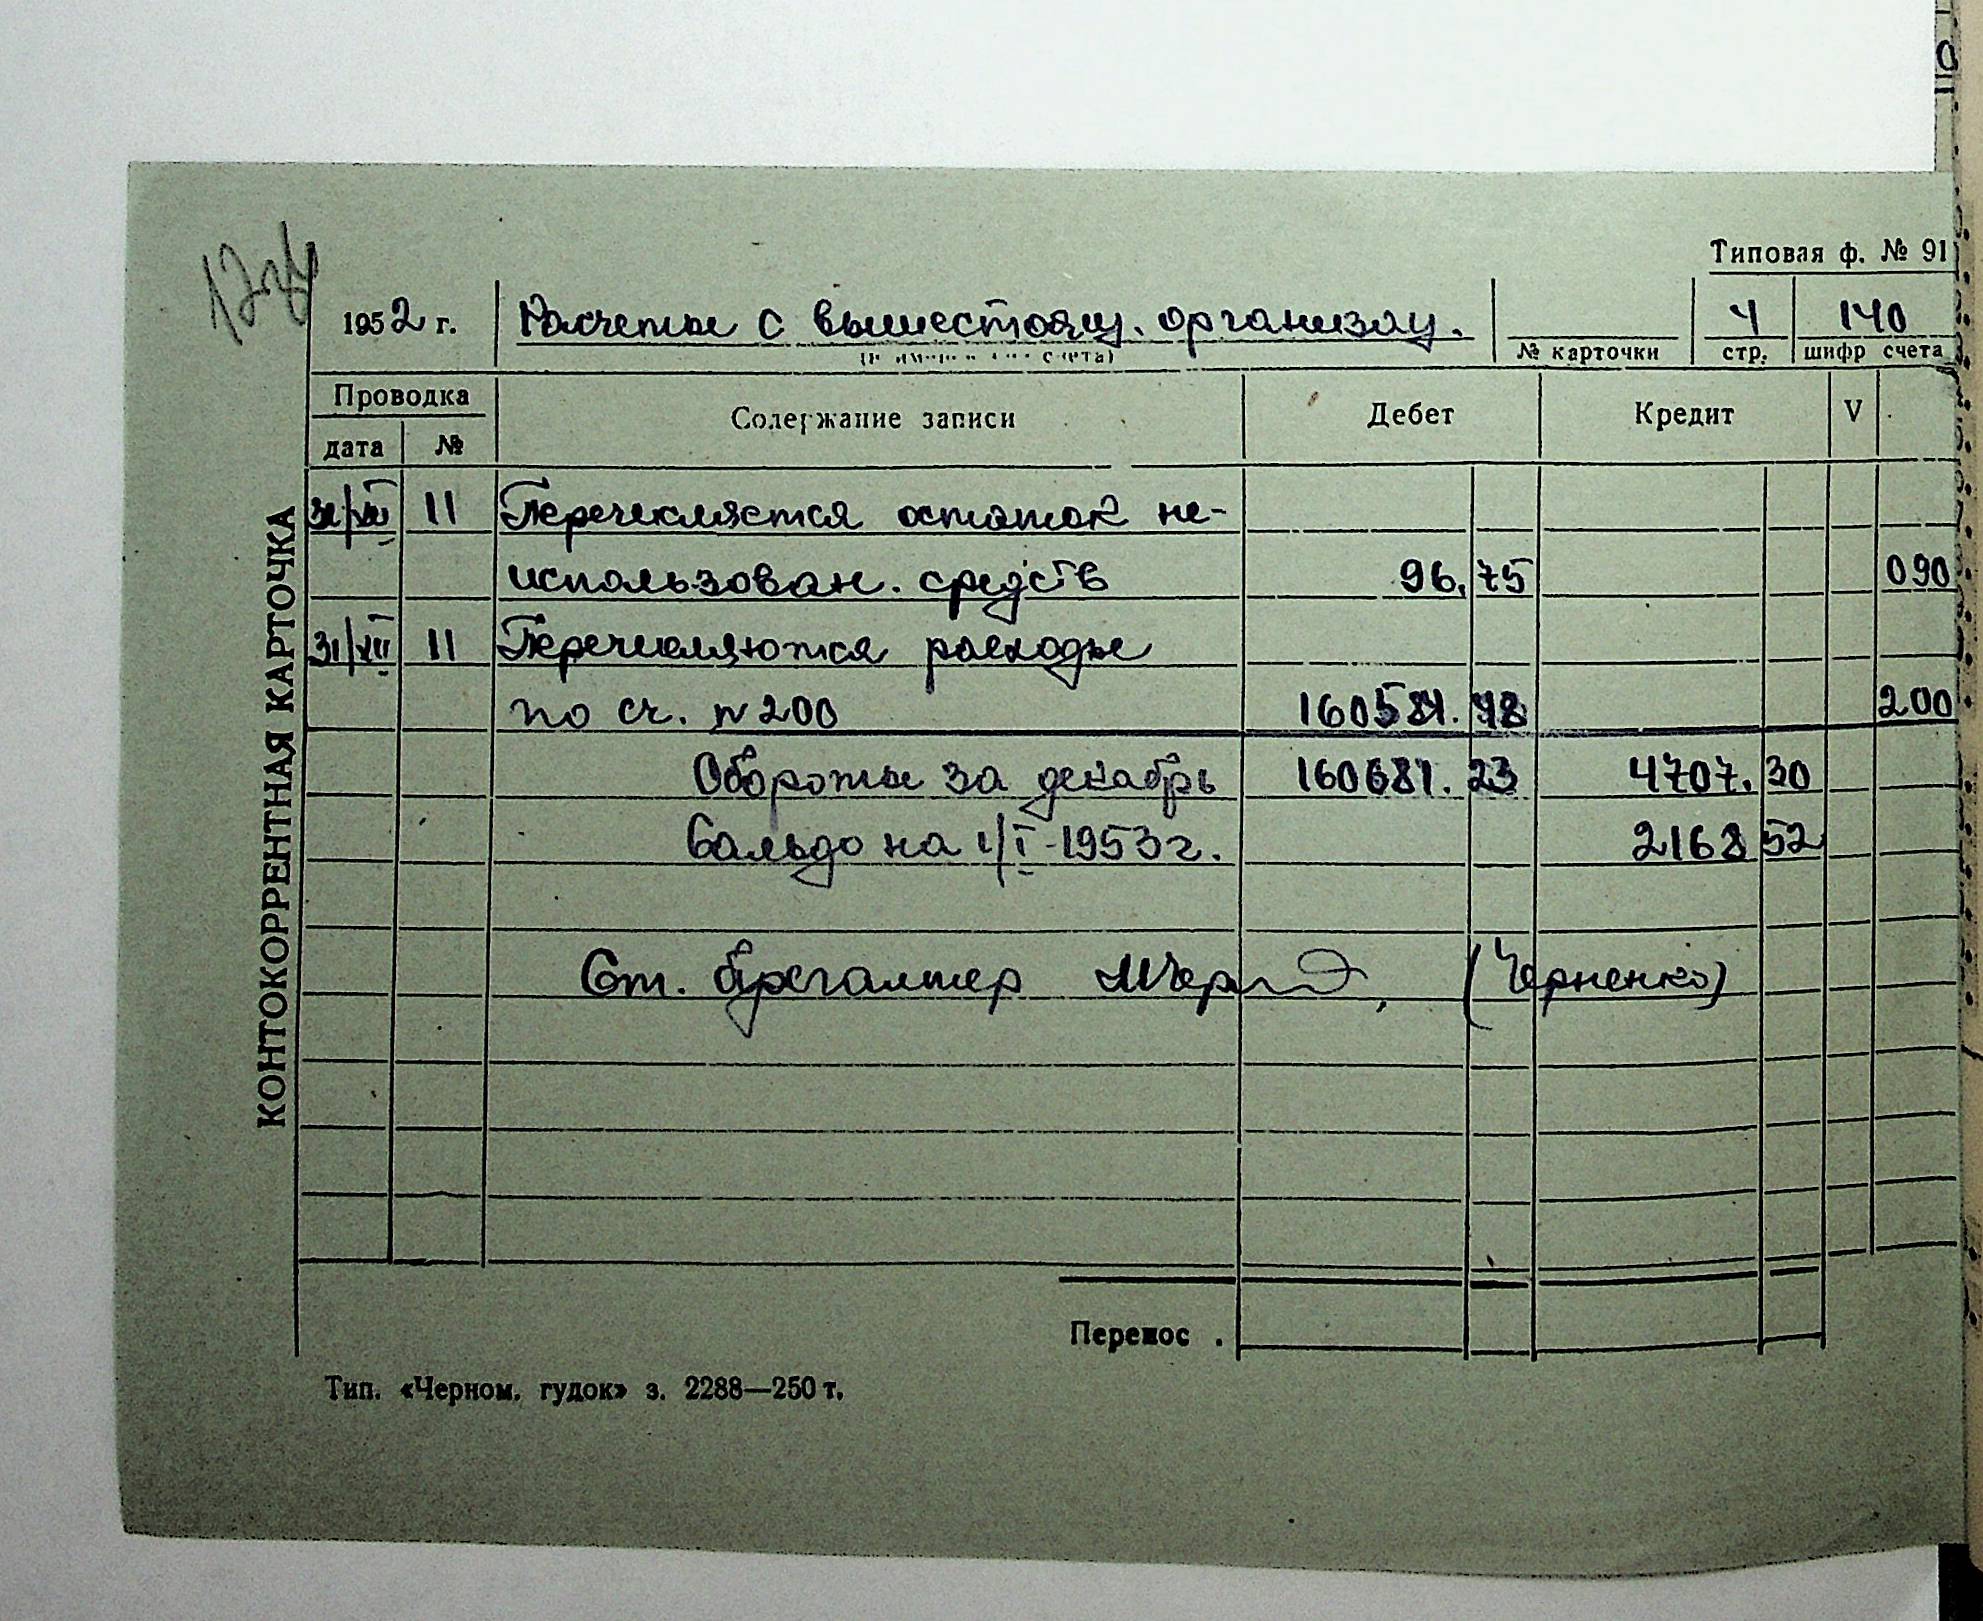 Типовая ф. № 91
1952 г. Расчеты с вышестоящ. организац. 4 140
№ карточки стр. шифр счета
Проводка Содержание записи Дебет Кредит V
дата №
КОНТОКОРРЕНТНАЯ КАРТОЧКА
31/XII 11 Перечисляется остаток не-
использован. средств 96.75 090
31/XII 11 Перечисляются расходы
по сч. № 200 160584.48 200
Обороты за декабрь 160681.23 4707.30
Сальдо на 1/I-1953 г. 2168 52
Ст. бухгалтер (Черненко)
Перенос .
Тип. «Черном. гудок» з. 2288—250 т.